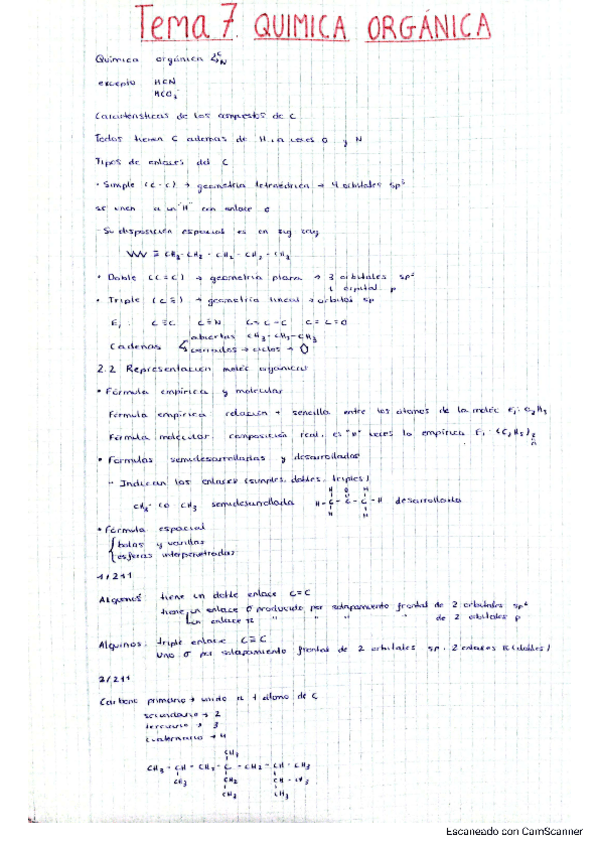 Tema 7 QUIMICA ORGÁNICA
Química orgánica C N
excepto HCN
HCO3
Características de los compuestos de C
Todos tienen C ademas de H, a veces O y N
Tipos de enlaces del C
• Simple (C-C) → geometría tetraédrica → 4 orbitales sp3
se unen a un "H" con enlace σ
Su disposición espacial es en zig zag
≡ CH3-CH2-CH2-CH2-CH2-CH3
• Doble (C=C) → geometría plana → 3 orbitales sp2
1 orbital p
• Triple (C≡) → geometría lineal → orbitas sp
Ej: C≡C C≡N C=C-C C=C=O
Cadenas abiertas CH3-CH2-CH3
cerradas → ciclos →
2.2 Representación moléc orgánicas
• Fórmula empírica y molecular
Fórmula empírica: relación + sencilla entre los átomos de la moléc Ej: C2H5
Fórmula molecular: composición real, es "n" veces la empírica Ej: (C2H5)2
n
• Fórmulas semidesarrolladas y desarrolladas
- Indican los enlaces (simples, dobles, triples)
CH3-CO CH3 semidesarrollada
H O H
H-C-C-C-H desarrollada
H H
• Fórmula espacial
bolas y varillas
esferas interpenetradas
1/211
Alquenos: tiene un doble enlace C=C
tiene un enlace σ producido por solapamiento frontal de 2 orbitales sp2
un enlace π " " " de 2 orbitales p
Alquinos: triple enlace C≡C
Uno σ por solapamiento frontal de 2 orbitales sp. 2 enlaces π (dobles)
2/211
Carbono primario → unido a 1 átomo de C
secundario → 2
terciario → 3
cuaternario → 4
CH3
CH3-CH-CH2-C-CH2-CH-CH3
CH3 CH2 CH-CH3
CH3 CH3
Escaneado con CamScanner